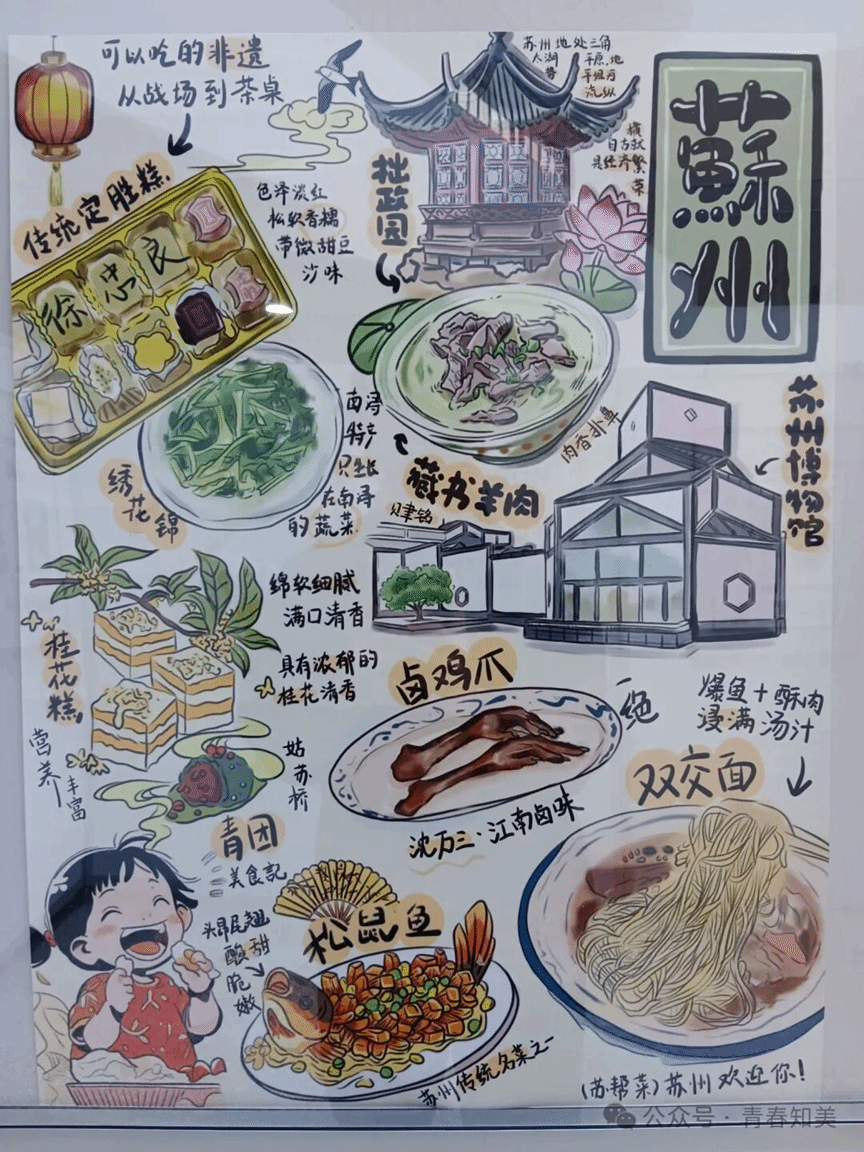 可以吃的非遗
从战场到茶桌
传统定胜糕
徐忠良
色泽淡红
松软香糯
带微甜豆
沙味
苏州地处三角
太湖平原,地
势平坦
自古就
是经济繁
荣
拙政园
蘇州
绣花锦
南浔
特产
只生长
在南浔
的蔬菜
藏书羊肉
肉香扑鼻
苏州博物馆
贝聿铭
桂花糕
绵软细腻
满口清香
具有浓郁的
桂花清香
营养丰富
姑苏桥
青团
美食記
卤鸡爪
一绝
沈万三·江南卤味
爆鱼+酥肉
浸满汤汁
双交面
松鼠鱼
头昂尾翘
酸甜
脆嫩
苏州传统名菜之一
(苏帮菜)苏州欢迎你!
公众号·青春知美